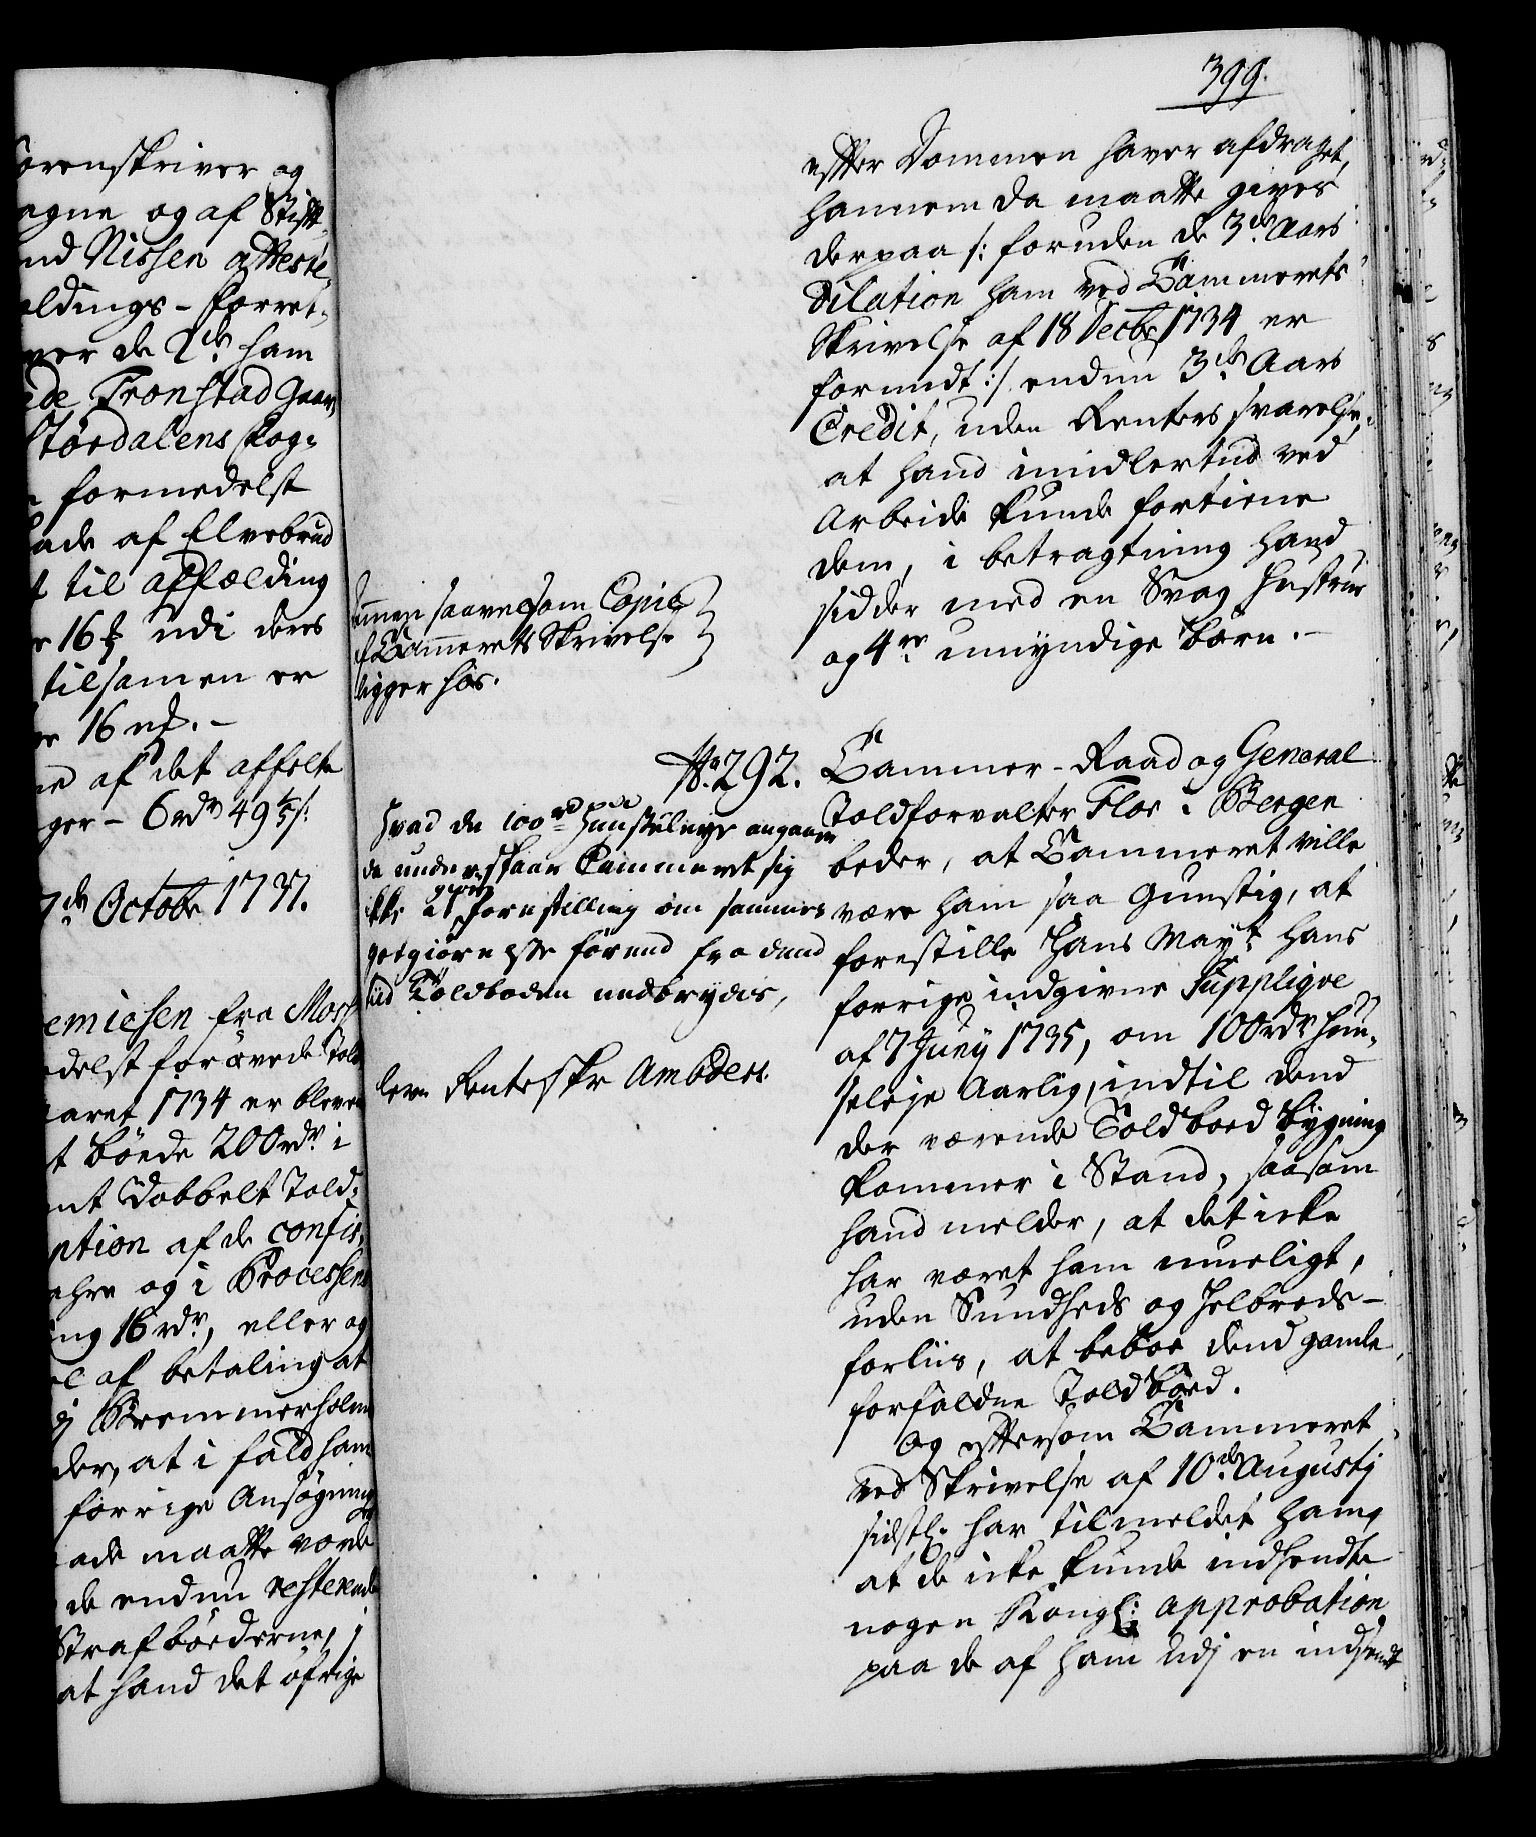 399.
orenskriver og
egne og af Stift-
nd Nissen atteste-
ldings-forret-
ver de 2de ham
de Fronstad gaar,
Størdalens fog-
formedelst
ade af Elvebrud
t til affælding
16 udi deres
tilsamen er
16
af det affelte
ger - 6 rdr 49
7de Octobr 1737.
emiesen fra Moss
delst forøvede Told
aaret 1734 er bleven
t bøede 200 rdr i
nt Dobbelt Told-
ption af de confis-
ahre og i Processens
ng 16 rdr, eller og
el af betaling at
Bremmerholm
der, at i fald ham
forrige Ansøgning
ade maatte vorde
de endnu resterende
Strafbøderne,
at hand det øfrige
efter Dommen haver afdraget,
hannem da maatte gives
derpaa /: foruden de 3de Aars
Dilation ham ved Cammerets
Skrivelse af 18 Decbr 1734 er
forundt :/ endnu 3de Aars
Credit, uden Renters svarelse,
at hand imidlertid ved
Arbeide kunde fortiene
dem, i betragtning hand
sidder med en Svag Hustrue
og 4re umyndige børn.-
mmen saavelsom Copie
f Cammerets Skrivelse
ligger hos.
No 292.
Cammer-Raad og General
Toldforvalter Flor i Bergen
beder, at Cammeret ville
være ham saa gunstig, at
forestille Hans Mayt hans
forrige indgivne Supplique
af 7 Juny 1735, om 100 rdr huu-
seleje Aarlig, indtil dend
der værende Toldboed bygning
kommer i Stand, saasom
hand melder, at det icke
har været ham mueligt,
uden Sundheds og Helbreds-
forliis, at beboe dend gamle
forfaldne Toldboed.
Og eftersom Cammeret
ved Skrivelse af 10de Augustj
sidstl. har tilmeldet ham,
at de icke kunde indhendte
nogen Kongl: approbation
paa de af ham udj en indsendt
Hvad de 100 rd huusleye angaaer
da understaar Cammeret sig
ikke at giøre forestilling om sammes
godtgiørelse førend fra dend
tiid Toldboden nedbrydes,
lev. Renteskr Ambders.